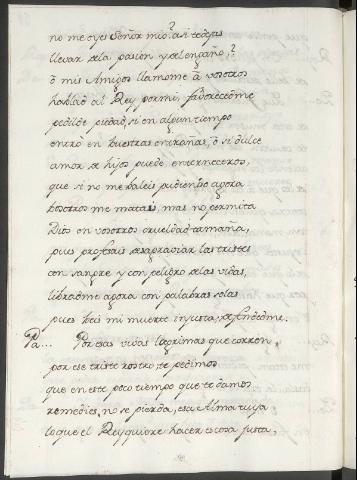 no me oyes Señor mio? asi te dejas
llevar dela pasion y del engaño,?
ò mis Amigos llamome à vosotros
hablad al Rey por mi, faborecedme
pedilde piedad, si en algun tiempo
entrò en buestras entrañas, ò si dulce
amor de hijos puede enterneceros,
que si no me baleis pudiendo agora
bosotros me matais, mas no permita
Dios en vosotros crueldad tamaña,
pues profesais desagraviar las tristes
con sangre y con peligro delas vidas,
libradme agora con palabras solas
pues beis mi muerte injusta, defendedme.
Pa... Por esas vivas lagrimas que corren,
por ese triste rostro, te pedimos
que en este poco tiempo que te damos
remedies, no se pierda, esa Alma tuya
lo que el Rey quiere hacer es cosa justa,